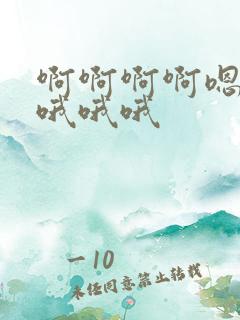 啊啊啊啊嗯
哦哦哦
一10
未经同意禁止转载